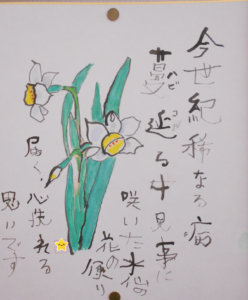 今世紀稀なる病
蔓延る中見事に
ハビ コ
咲いた水仙
花の便り
届く、心洗れる
思いです